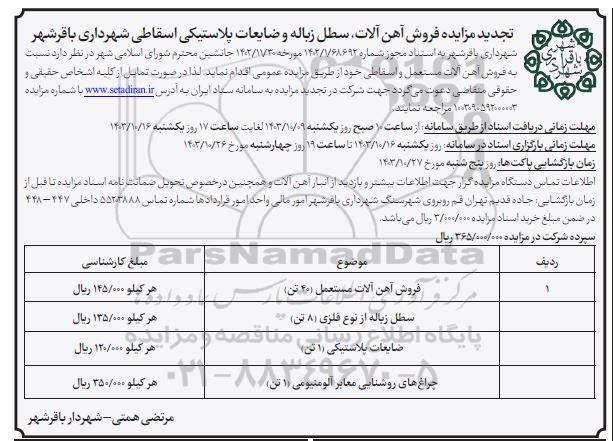 تجدید مزایده فروش آهن آلات، سطل زباله و ضایعات پلاستیکی اسقاطی شهرداری باقرشهر
شهرداری باقرشهر
شهرداری باقرشهر به استناد مجوز شماره ۱۴۰۲/۱/۶۸۶۹۲ مورخه ۱۴۰۲/۱۱/۳۰ جانشین محترم شورای اسلامی شهر در نظر دارد نسبت
به فروش آهن آلات مستعمل و اسقاطی خود از طریق مزایده عمومی اقدام نماید. لذا در صورت تمایل از کلیه اشخاص حقیقی و
حقوقی متقاضی دعوت می‌گردد جهت شرکت در تجدید مزایده به سامانه ستاد ایران به آدرس www.setadiran.ir با شماره مزایده
۱۰۰۳۰۹۰۵۹۲۰۰۰۰۰۳ مراجعه نمایند.
مهلت زمانی دریافت اسناد از طریق سامانه: از ساعت ۱۰ صبح روز یکشنبه ۱۴۰۳/۱۰/۰۹ لغایت ساعت ۱۷ روز یکشنبه ۱۴۰۳/۱۰/۱۶
مهلت زمانی بارگزاری اسناد در سامانه: روز یکشنبه ۱۴۰۳/۱۰/۱۶ تا ساعت ۱۹ روز چهارشنبه مورخ ۱۴۰۳/۱۰/۲۶
زمان بازگشایی پاکت‌ها: روز پنج شنبه مورخ ۱۴۰۳/۱۰/۲۷
اطلاعات تماس دستگاه مزایده گزار جهت اطلاعات بیشتر و بازدید از انبار آهن آلات و همچنین درخصوص تحویل ضمانت نامه اسناد مزایده تا قبل از
زمان بازگشایی: جاده قدیم تهران قم روبروی شهرسنگ شهرداری باقرشهر امور مالی واحد امور قراردادها شماره تماس ۵۵۲۳۸۸۸ داخلی ۴۴۷ – ۴۴۸
در ضمن مبلغ خرید اسناد مزایده ۳/۰۰۰/۰۰۰ ریال می‌باشد.
سپرده شرکت در مزایده ۳۶۵/۰۰۰/۰۰۰ ریال
ردیف موضوع مبلغ کارشناسی
۱ فروش آهن آلات مستعمل (۴۰ تن) هر کیلو ۱۴۵/۰۰۰ ریال
سطل زباله از نوع فلزی (۸ تن) هر کیلو ۱۳۵/۰۰۰ ریال
ضایعات پلاستیکی (۱ تن) هر کیلو ۱۲۰/۰۰۰ ریال
چراغ‌های روشنایی معابر آلومتیومی (۱ تن) هر کیلو ۳۵۰/۰۰۰ ریال
مرتضی همتی – شهردار باقرشهر
ParsNamadData
مرکز فرآوری اطلاعات پارس نماد داده‌ها
پایگاه اطلاع رسانی مناقصه و مزایده
۰۲۱-۸۸۳۴۹۶۷۰-۵